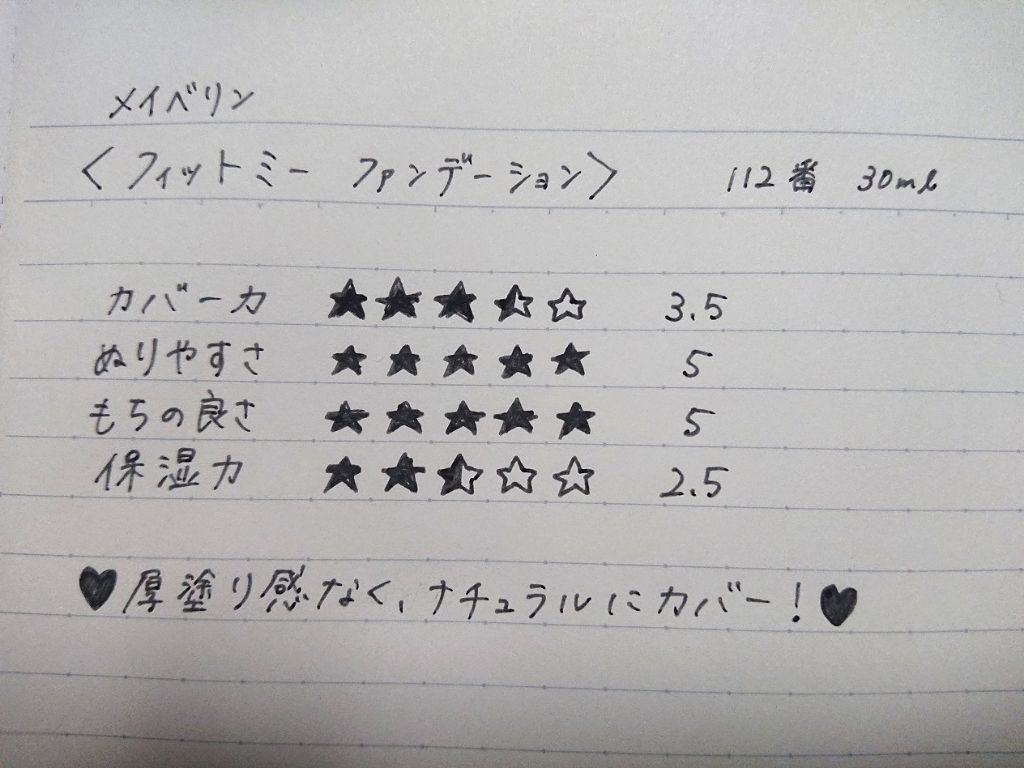 メイベリン
〈フィットミー ファンデーション〉 112番 30ml
カバー力 ★★★⯪☆ 3.5
ぬりやすさ ★★★★★ 5
もちの良さ ★★★★★ 5
保湿力 ★★⯪☆☆ 2.5
♥厚塗り感なく、ナチュラルにカバー!♥